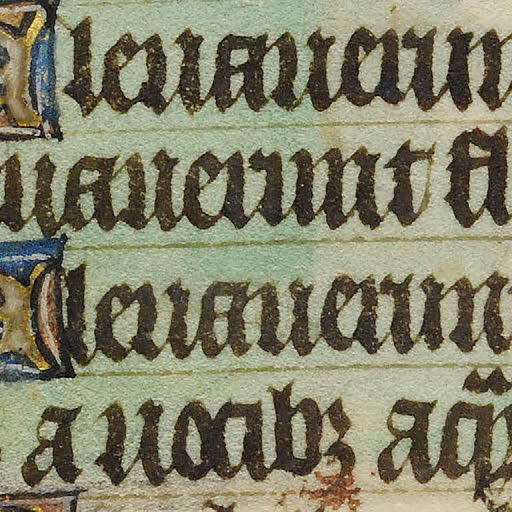 Eleuauerun
uauerunt fl
Eleuauerun
a uocibꝫ aq̃